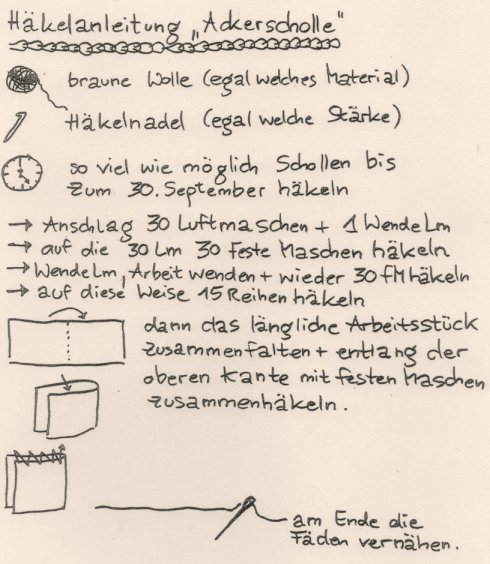 Häkelanleitung „Ackerscholle“
braune Wolle (egal welches Material)
Häkelnadel (egal welche Stärke)
so viel wie möglich Schollen bis
zum 30. September häkeln
→ Anschlag 30 Luftmaschen + 1 WendeLm
→ auf die 30 Lm 30 feste Maschen häkeln
→ WendeLm, Arbeit wenden + wieder 30 fM häkeln
→ auf diese Weise 15 Reihen häkeln
dann das längliche Arbeitsstück
zusammenfalten + entlang der
oberen Kante mit festen Maschen
zusammenhäkeln.
am Ende die
Fäden vernähen.